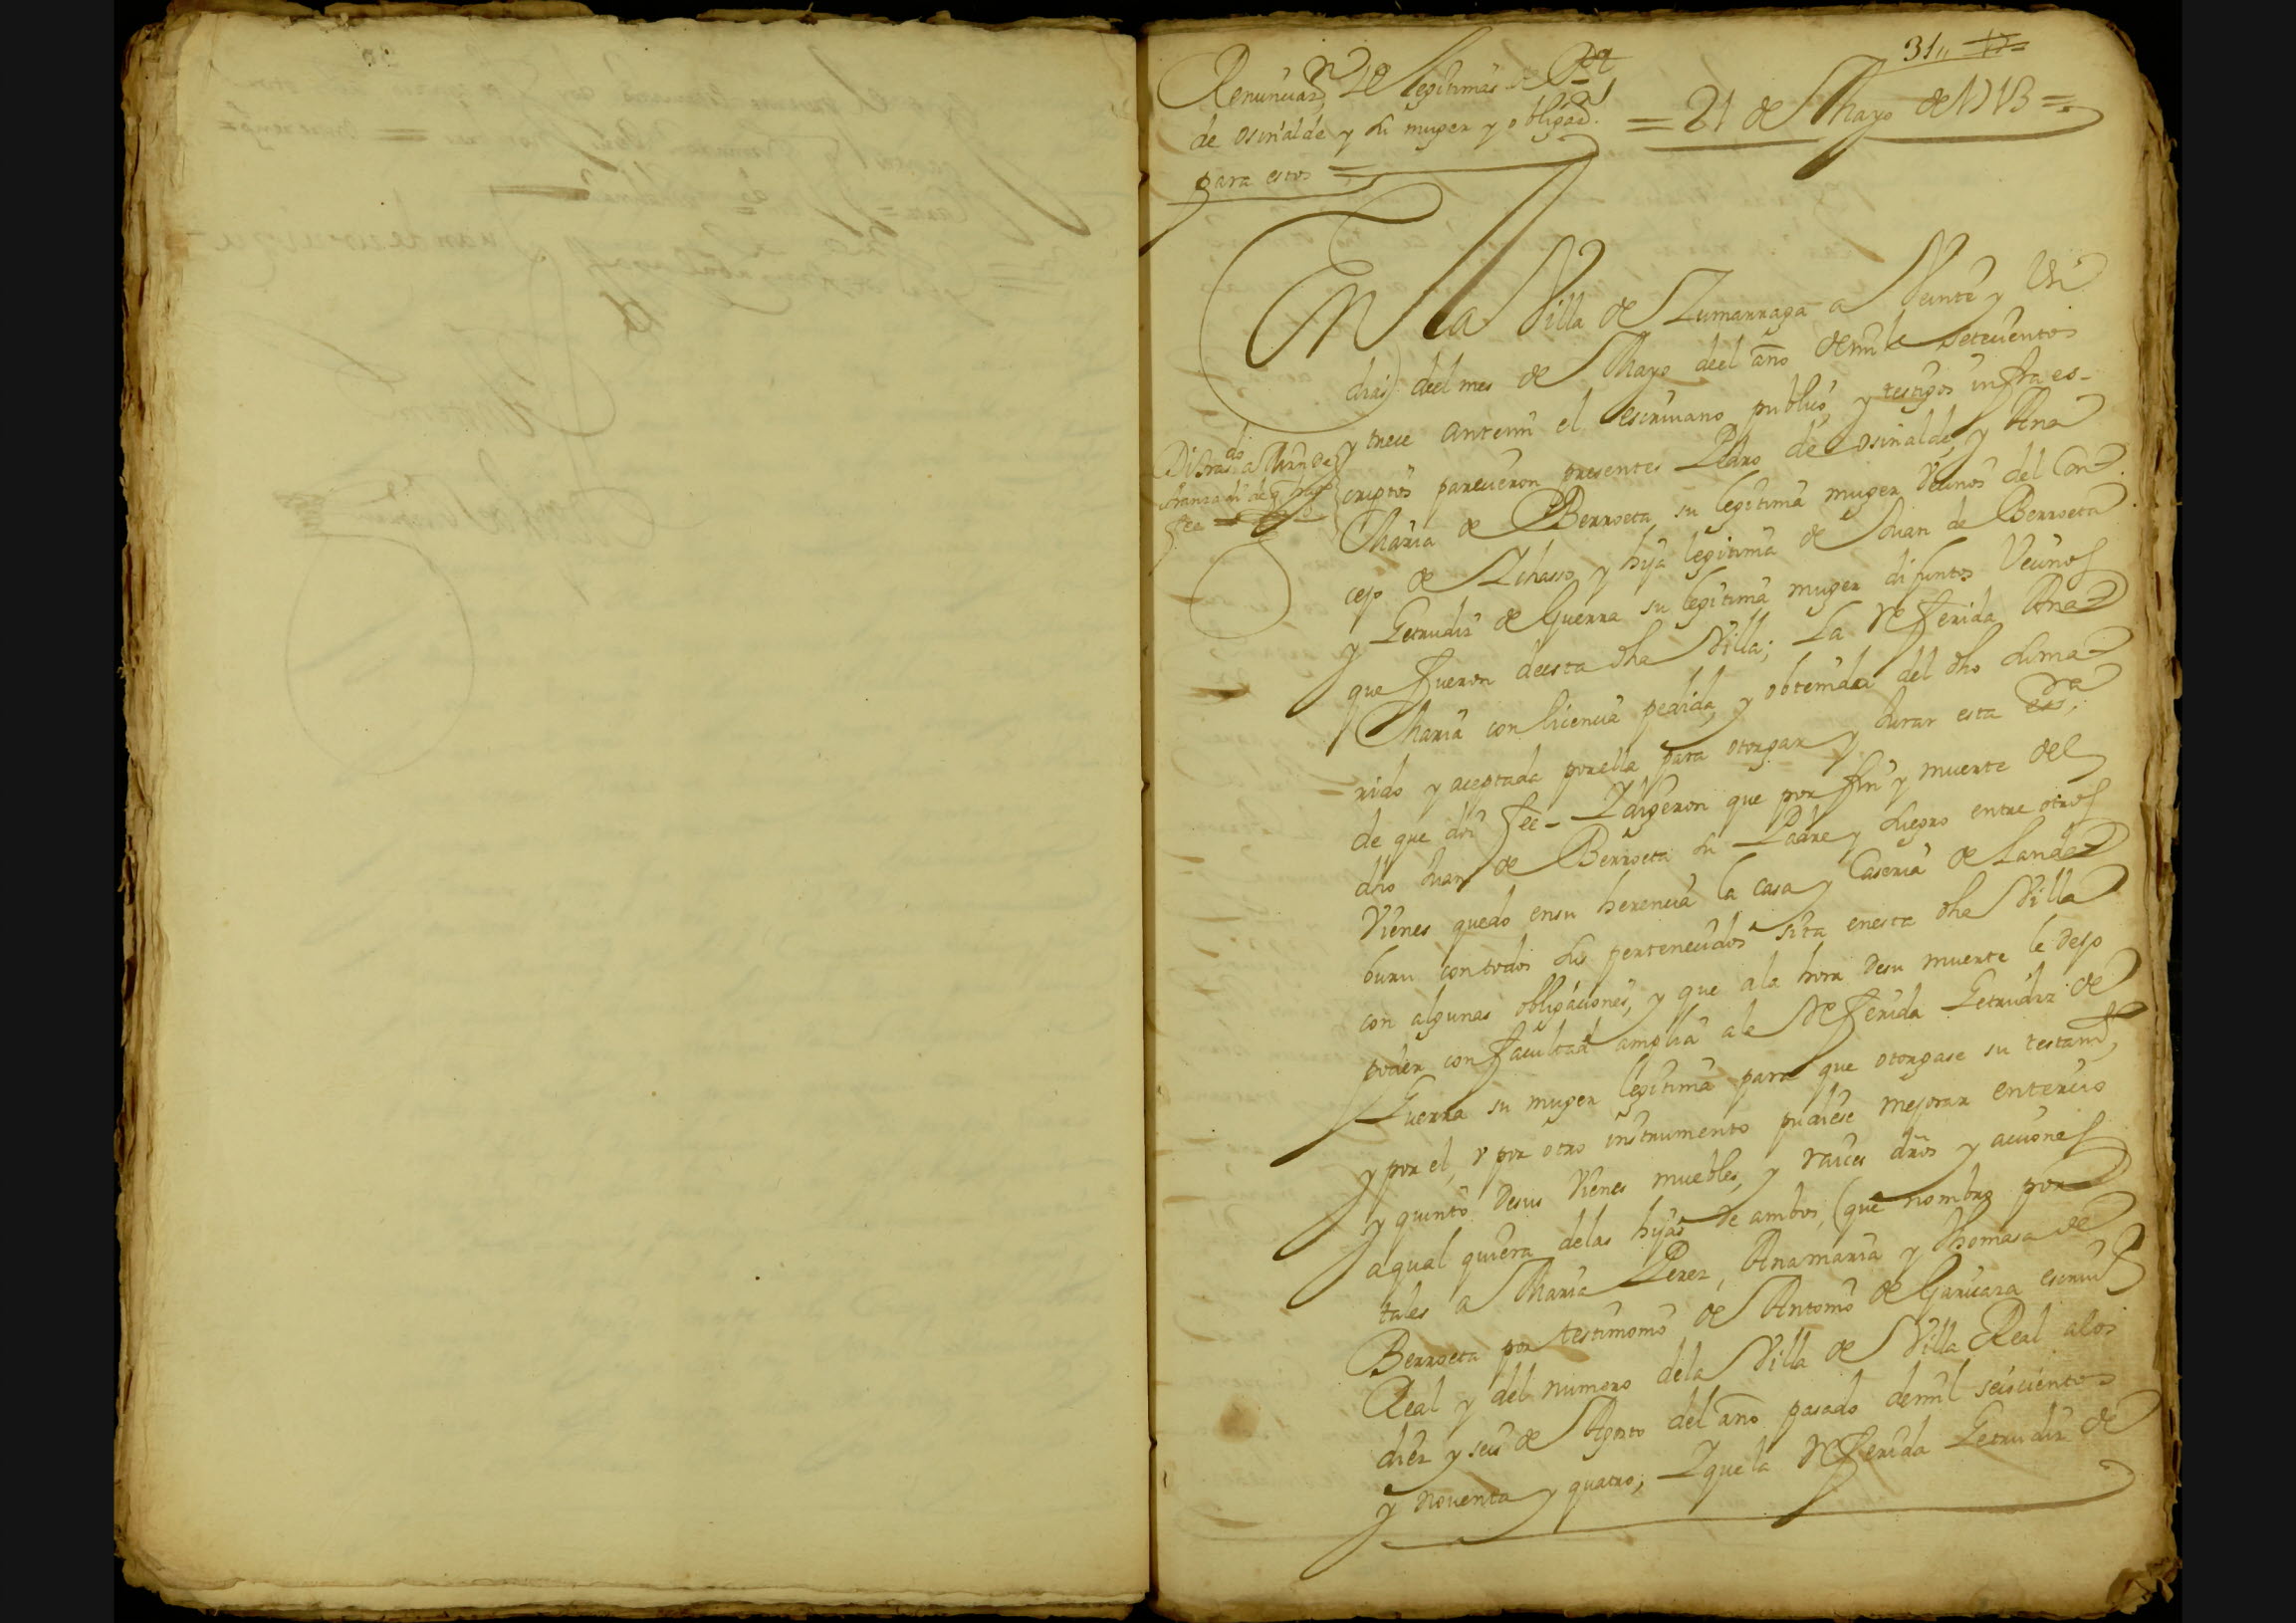 31
Renunciaçon de legitimas de Po
de osinalde y su muger y obligaçon
para estos =
= 21 de Mayo de 1713 =
En la Villa de Zumarraga a Veinte y Un
dias deel mes de Mayo deel año demil setecientos
y trece antemi el escriuano publico, y testigos infraes-
criptos parecieron presentes Pedro de osinalde, y Ana
Maria de Berroeta su legitima muger Vecinos del Con-
cejo de Ichasso, y hija legitima de Juan de Berroeta
y Getrudiz de Guerra su legitima muger difuntos Vecinos
que fueron deesta dha Villa; La referida Ana
Maria con licencia pedida, y obtenida del dho su ma-
rido y aceptada porella para otorgar y Jurar esta essra,
de que doi fee - Y digeron que por fin y muerte del
dho Juan de Berroeta su Padre y suegro entre otros
Vienes quedo ensu herencia la casa y Caseria de Landa
buru contodos sus pertenecidos sita enesta dha Villa
con algunas obligaciones, y que ala hora desu muerte le dejo
poder con facultad amplia ala referida Getrudiz de
Guerra su muger legitima para que otorgase su testamto,
y por el, v por otro instrumento pudiese mejorar entercio
y quinto desus Vienes muebles, y raices dros y acciones
aqual quiera delas hijas de ambos, (que nombro por
tales a Maria Perez, Anamaria y Thomasa de
Berroeta por testimonio de Antonio de Garicara escriuo
Real y del numero dela Villa de Villa Real alos
diez y seis de Agosto del año pasado demil seiscientos
y nouenta y quatro; Y quela referida Getrudiz de
fee =